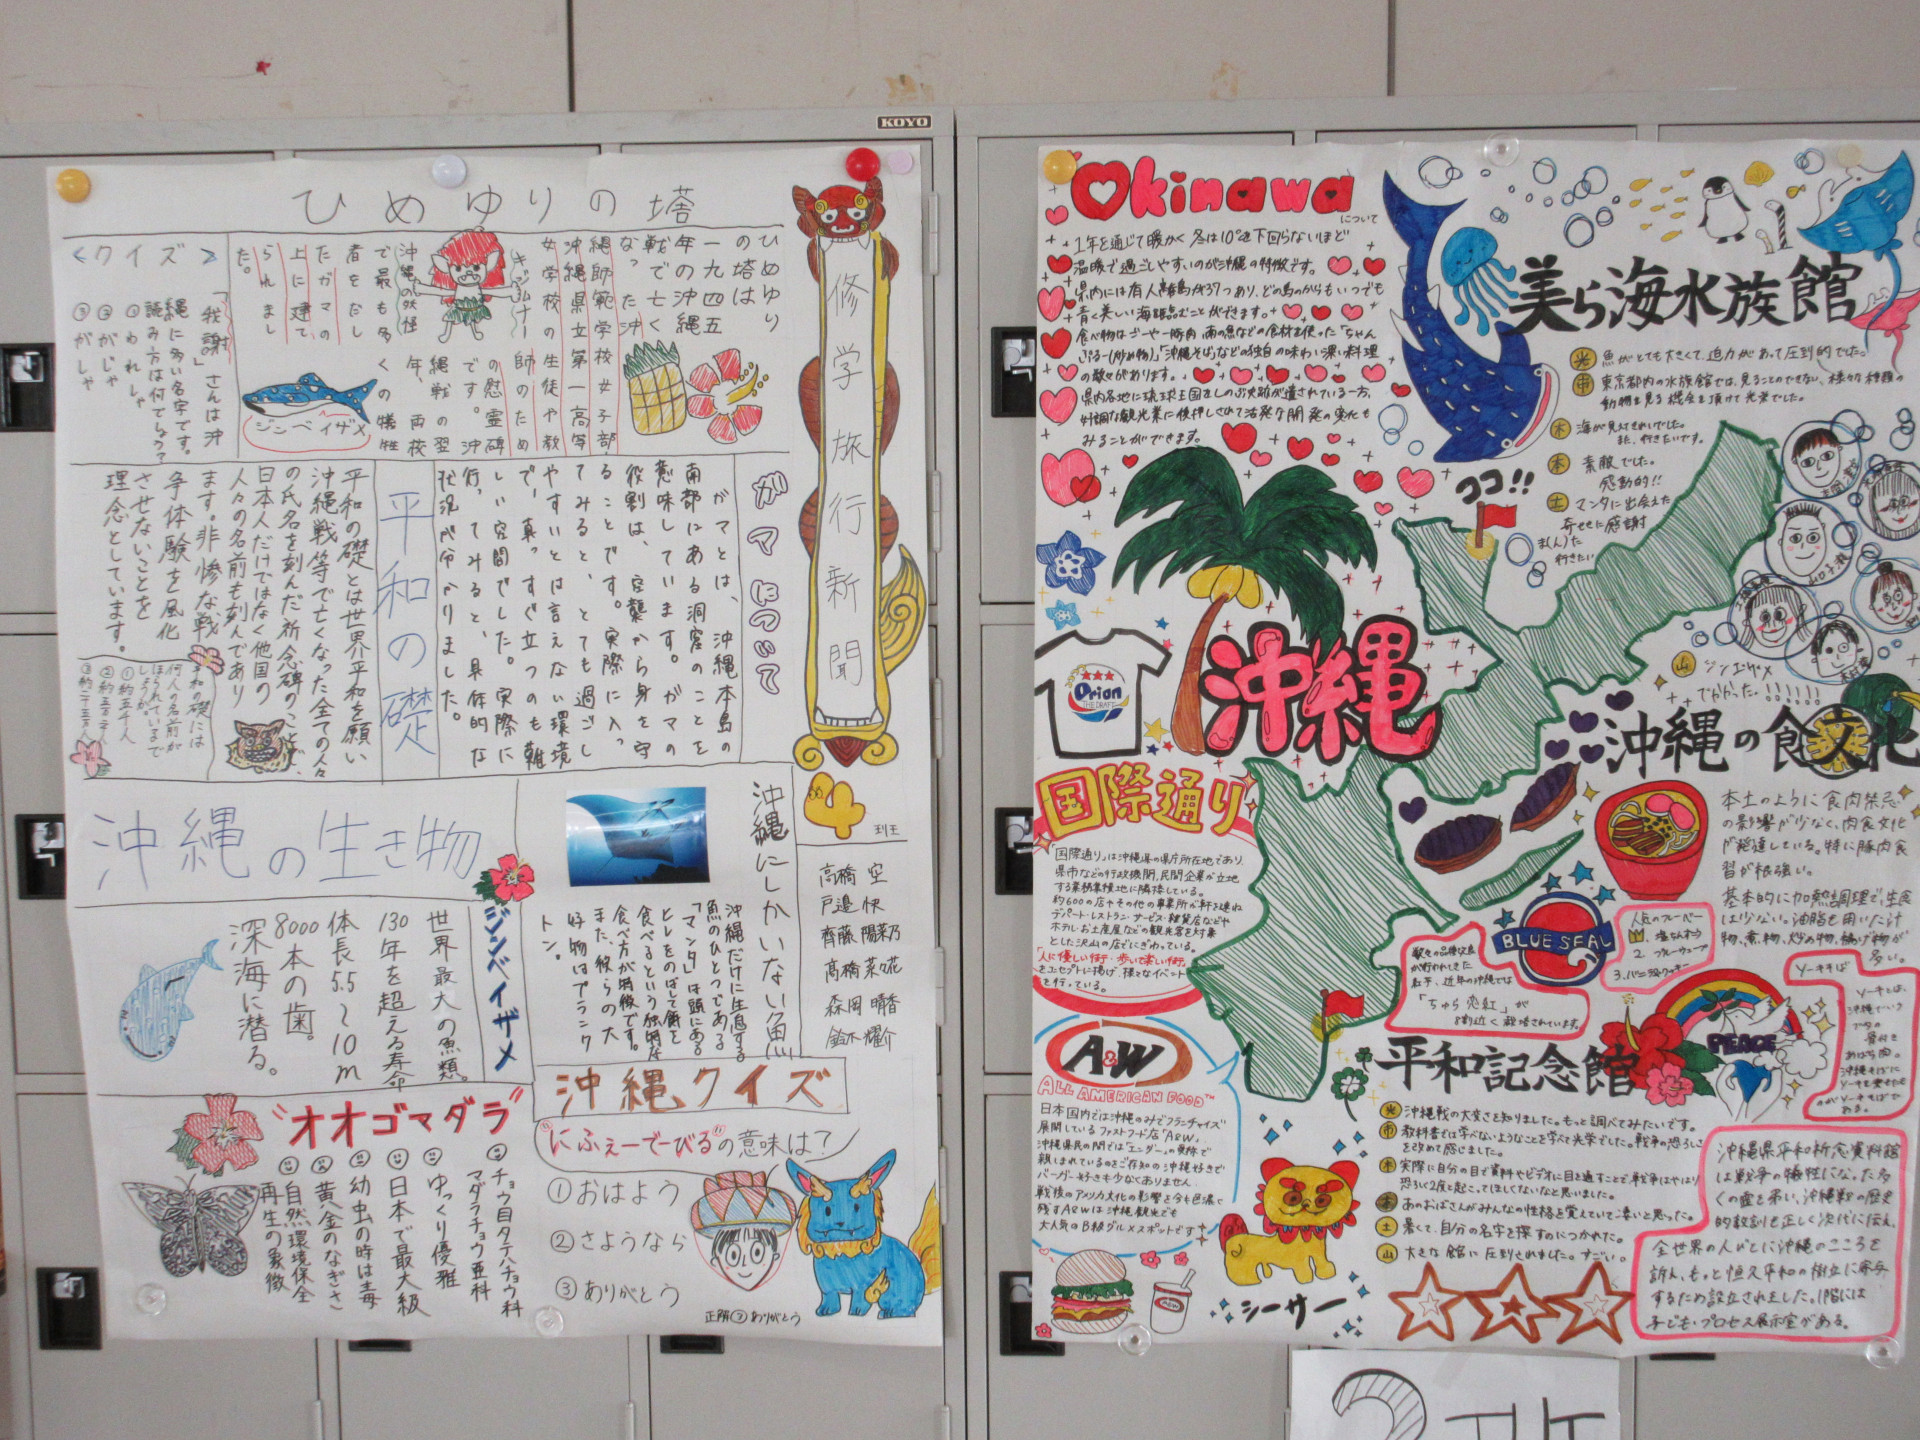 KOYO
ひめゆりの塔
修学旅行新聞
ひめゆり
の塔は
一九四五
年の沖縄
戦で亡く
なった沖
縄師範学校女子部
沖縄県立第一高等
女学校の生徒や教
師のため
の慰霊碑
です。沖
縄戦の翌
年、両校
で最も多くの犠牲
者をだし
たガマの
上に建て
られまし
た。
キジムナー
沖縄の妖怪
ジンベイザメ
<クイズ>
「我謝」さんは沖
縄に多い名字です。
読み方は何でしょう?
①われしゃ
②がじゃ
③がしゃ
ガマについて
ガマとは、沖縄本島の
南部にある洞窟のことを
意味しています。ガマの
役割は、空襲から身を守
ることです。実際に入っ
てみると、とても過ごし
やすいとは言えない環境
で、真っすぐ立つのも難
しい空間でした。実際に
行ってみると、具体的な
状況が分かりました。
平和の礎
平和の礎とは世界平和を願い
沖縄戦等で亡くなった全ての人々
の氏名を刻んだ祈念碑のことで、
日本人だけではなく他国の
人々の名前も刻んであり
ます。非惨な戦
争体験を風化
させないことを
理念としています。
平和の礎には
何人の名前が
ほられているで
しょうか。
①約五千人
②約五万人
③約二十五万人
4
班
高橋 空
戸邉 快
齊藤 陽菜乃
髙橋 菜々花
森岡 晴香
鈴木 耀介
沖縄にしかいない魚
沖縄だけに生息する
魚のひとつである
「マンタ」は頭にある
ヒレをのばして餌を
食べるという独特な
食べ方が特徴です。
また、彼らの大
好物はプランク
トン。
沖縄の生き物
ジンベイザメ
世界最大の魚類。
130年を超える寿命
体長5.5～10m
8000本の歯。
深海に潜る。
"オオゴマダラ"
チョウ目タテハチョウ科
マダラチョウ亜科
ゆっくり優雅
日本で最大級
幼虫の時は毒
黄金のなぎさ
自然環境保全
再生の象徴
沖縄クイズ
"にふぇーでーびる"の意味は?
①おはよう
②さようなら
③ありがとう
正解③ありがとう
Okinawa
について
1年を通じて暖かく冬は10℃を下回らないほど
温暖で過ごしやすいのが沖縄の特徴です。
県内には有人離島が37つあり、どの島のからもいつでも
青く美しい海を臨むことができます。
食べ物はゴーヤー、豚肉、南の魚などの食材を使った「ちゃん
ぷるー(炒め物)」「沖縄そば」などの独自の味わい深い料理
の数々があります。
県内各地に琉球王国をしのぶ史跡が遺されている一方、
好調な観光業に後押しされて活発な開発の変化も
みることができます。
美ら海水族館
魚がとても大きくて、迫力があって圧倒的でした。
東京都内の水族館では、見ることのできない、様々な種類の
動物を見る機会を頂けて光栄でした。
海が見れてきれいでした。
また、行きたいです。
素敵でした。
感動的!!
マンタに出会えた
幸せに感謝
行きたい
ジンエイザメ
でかかった!!!!!!
ココ!!
Orion
THE DRAFT
沖縄
国際通り
「国際通り」は沖縄県の県庁所在地であり、
県市などの行政機関、民間企業が立地
する業務集積地に隣接している。
約600の店やその他の事業所が軒を連ね
デパート・レストラン・サービス・雑貨店などや
ホテル・お土産屋などの観光客を対象
とした沢山の店でにぎわっている。
「人に優しい街・歩いて楽しい街」
をコンセプトに掲げ、様々なイベント
を行っている。
A&W
ALL AMERICAN FOOD™
日本国内では沖縄のみでフランチャイズ
展開しているファストフード店「A&W」。
沖縄県民の間では「エンダー」の愛称で
親しまれているのをご存知の沖縄好きで
バーガー好きも少なくありません。
戦後のアメリカ文化の影響を今も色濃く
残すA&Wは沖縄観光でも
大人気のB級グルメスポットです
A&W
シーサー
沖縄の食文化
本土のように食肉禁忌
の影響が少なく、肉食文化
が発達している。特に豚肉食
習が根強い。
基本的に加熱調理で、生食
は少ない。油脂を用いた汁
物、煮物、炒め物、揚げ物が
多い。
BLUE SEAL
人気のフレーバー
2. ブルーウェーブ
3. バニラクッキー
近年の沖縄では
「ちゅら恋紅」が
8割近く栽培されています。
ソーキそば
ソーキとは、
沖縄でいう
ブタの
骨付き
あばら肉。
沖縄そばに
ソーキを乗せたも
のがソーキそばで
ある。
PEACE
平和記念館
沖縄戦の大変さを知りました。もっと調べてみたいです。
教科書では学べないようなことを学べて光栄でした。戦争の恐ろしさ
を改めて感じました。
実際に自分の目で資料やビデオに目を通すことで戦争はやはり
恐ろしく2度と起こってほしくないなと思いました。
あのおばさんがみんなの性格を覚えていて凄いと思った。
暑くて、自分の名字を探すのにつかれた。
大きな館に圧倒されました。すごい。
沖縄県平和祈念資料館
は戦争の犠牲になった多
くの霊を弔い、沖縄戦の歴史
的教訓を正しく次代に伝え、
全世界の人びとに沖縄のこころを
訴え、もって恒久平和の樹立に寄与
するため設立されました。1階には
子ども・プロセス展示室がある。